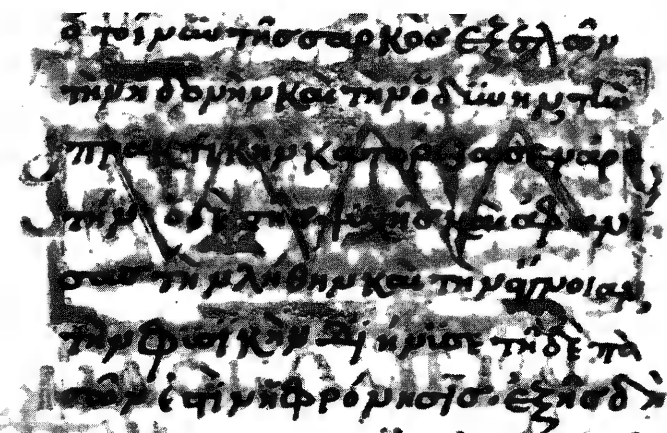 ὁ τοίνυν τῆς σαρκὸς ἐξελὼν
τὴν ἡδονὴν καὶ τὴν ὀδύνην, τὴν
πρακτικὴν κατόρθωσεν ἀρε
τήν· ὁ δὲ τῆς ψυχῆς ἀφανί
σας τὴν λήθην καὶ τὴν ἄγνοιαν,
τὴν φυσικὴν διήνυσε
ἐστὶν ἡ φρόνησις· ἐξ ἧς δὴ